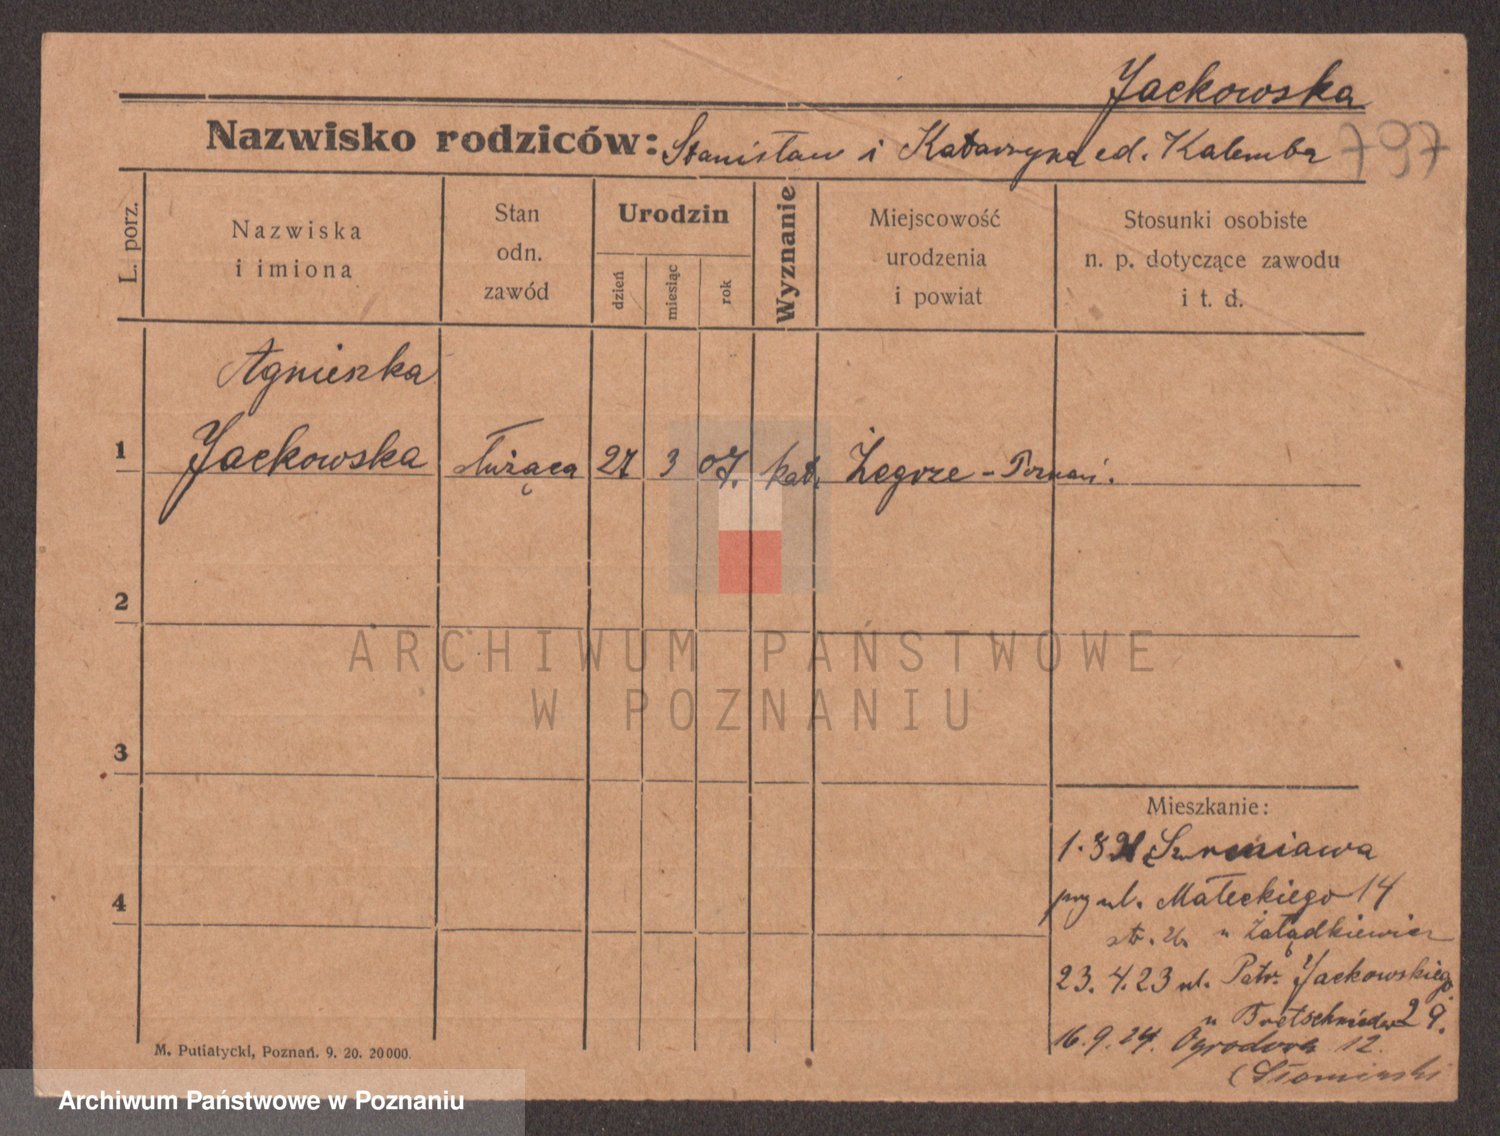 Jackowska
Nazwisko rodziców: Stanisław i Katarzyna ed. Kalemba 797
L. porz.
Nazwiska
i imiona
Stan
odn.
zawód
Urodzin
dzień
miesiąc
rok
Wyznanie
Miejscowość
urodzenia
i powiat
Stosunki osobiste
n. p. dotyczące zawodu
i t. d.
Agnieszka
1 Jackowska służąca 27 3 07. kat. Żegrze - Poznań.
2
3
4
ARCHIWUM PAŃSTWOWE
W POZNANIU
Mieszkanie:
przy ul. Małeckiego 14
u Żołądkiewicz
23. 4. 23 ul. Patr. Jackowskiego
u Bretschneider 29.
16. 9. 24. Ogrodowa 12.
(Słomiński
M. Putiatycki, Poznań. 9. 20. 20000.
Archiwum Państwowe w Poznaniu